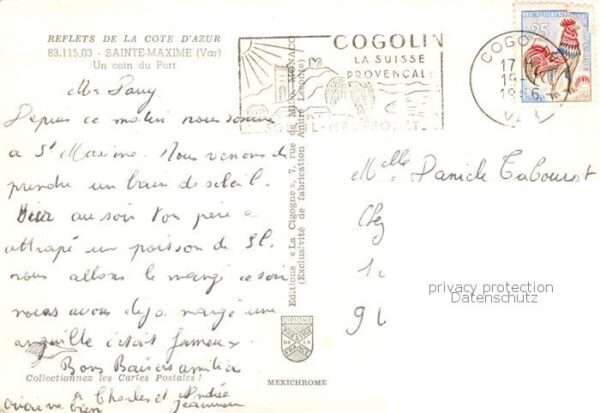 REFLETS DE LA COTE D'AZUR
83.115.03 - SAINTE-MAXIME (Var)
Un coin du Port
Depuis ce matin nous somme
a St Maxime. Nous venons de
prendre un bain de soleil.
Hier au soir ton père a
attrapé un poisson de 3l.
nous allons le mangé ce soir
nous avons déja mangé une
anguille c'était fameux
Bons Baisers amitié
a Charles et Andrée
bien
Collectionnez les Cartes Postales !
Editions « La Cigogne », 7, rue de Millo - MONACO
(Exclusivité de fabrication André Leconte)
DIPLOME
PRESTIGE
DE LA
FRANCE
MEXICHROME
COGOLIN
LA SUISSE
PROVENÇALE
SOLEIL - MER - FORET
COGOLIN
17 H
VAR
Melle Daniele Tabourot
Chez
privacy protection
Datenschutz